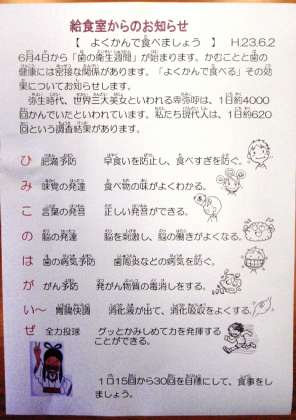 給食室からのお知らせ
【 よくかんで食べましょう 】 H.23.6.2
6月4日から「歯の衛生週間」が始まります。かむことと歯の
健康には密接な関係があります。「よくかんで食べる」その効
果についてお知らせします。
弥生時代、世界三大美女といわれる卑弥呼は、1日約4000
回かんでいたといわれています。私たち現代人は、1日約620
回という調査結果があります。
ひ 肥満予防 早食いを防止し、食べすぎを防ぐ。
み 味覚の発達 食べ物の味がよくわかる。
こ 言葉の発音 正しい発音ができる。
の 脳の発達 脳を刺激し、脳の働きがよくなる。
は 歯の病気予防 歯周炎などの病気を防ぐ。
が がん予防 発がん物質の毒消しをする。
い〜 胃腸快調 消化液が出て、消化吸収をよくする。
ぜ 全力投球 グッとかみしめて力を発揮する
ことができる。
1口15回から30回を目標にして、食事をし
ましょう。